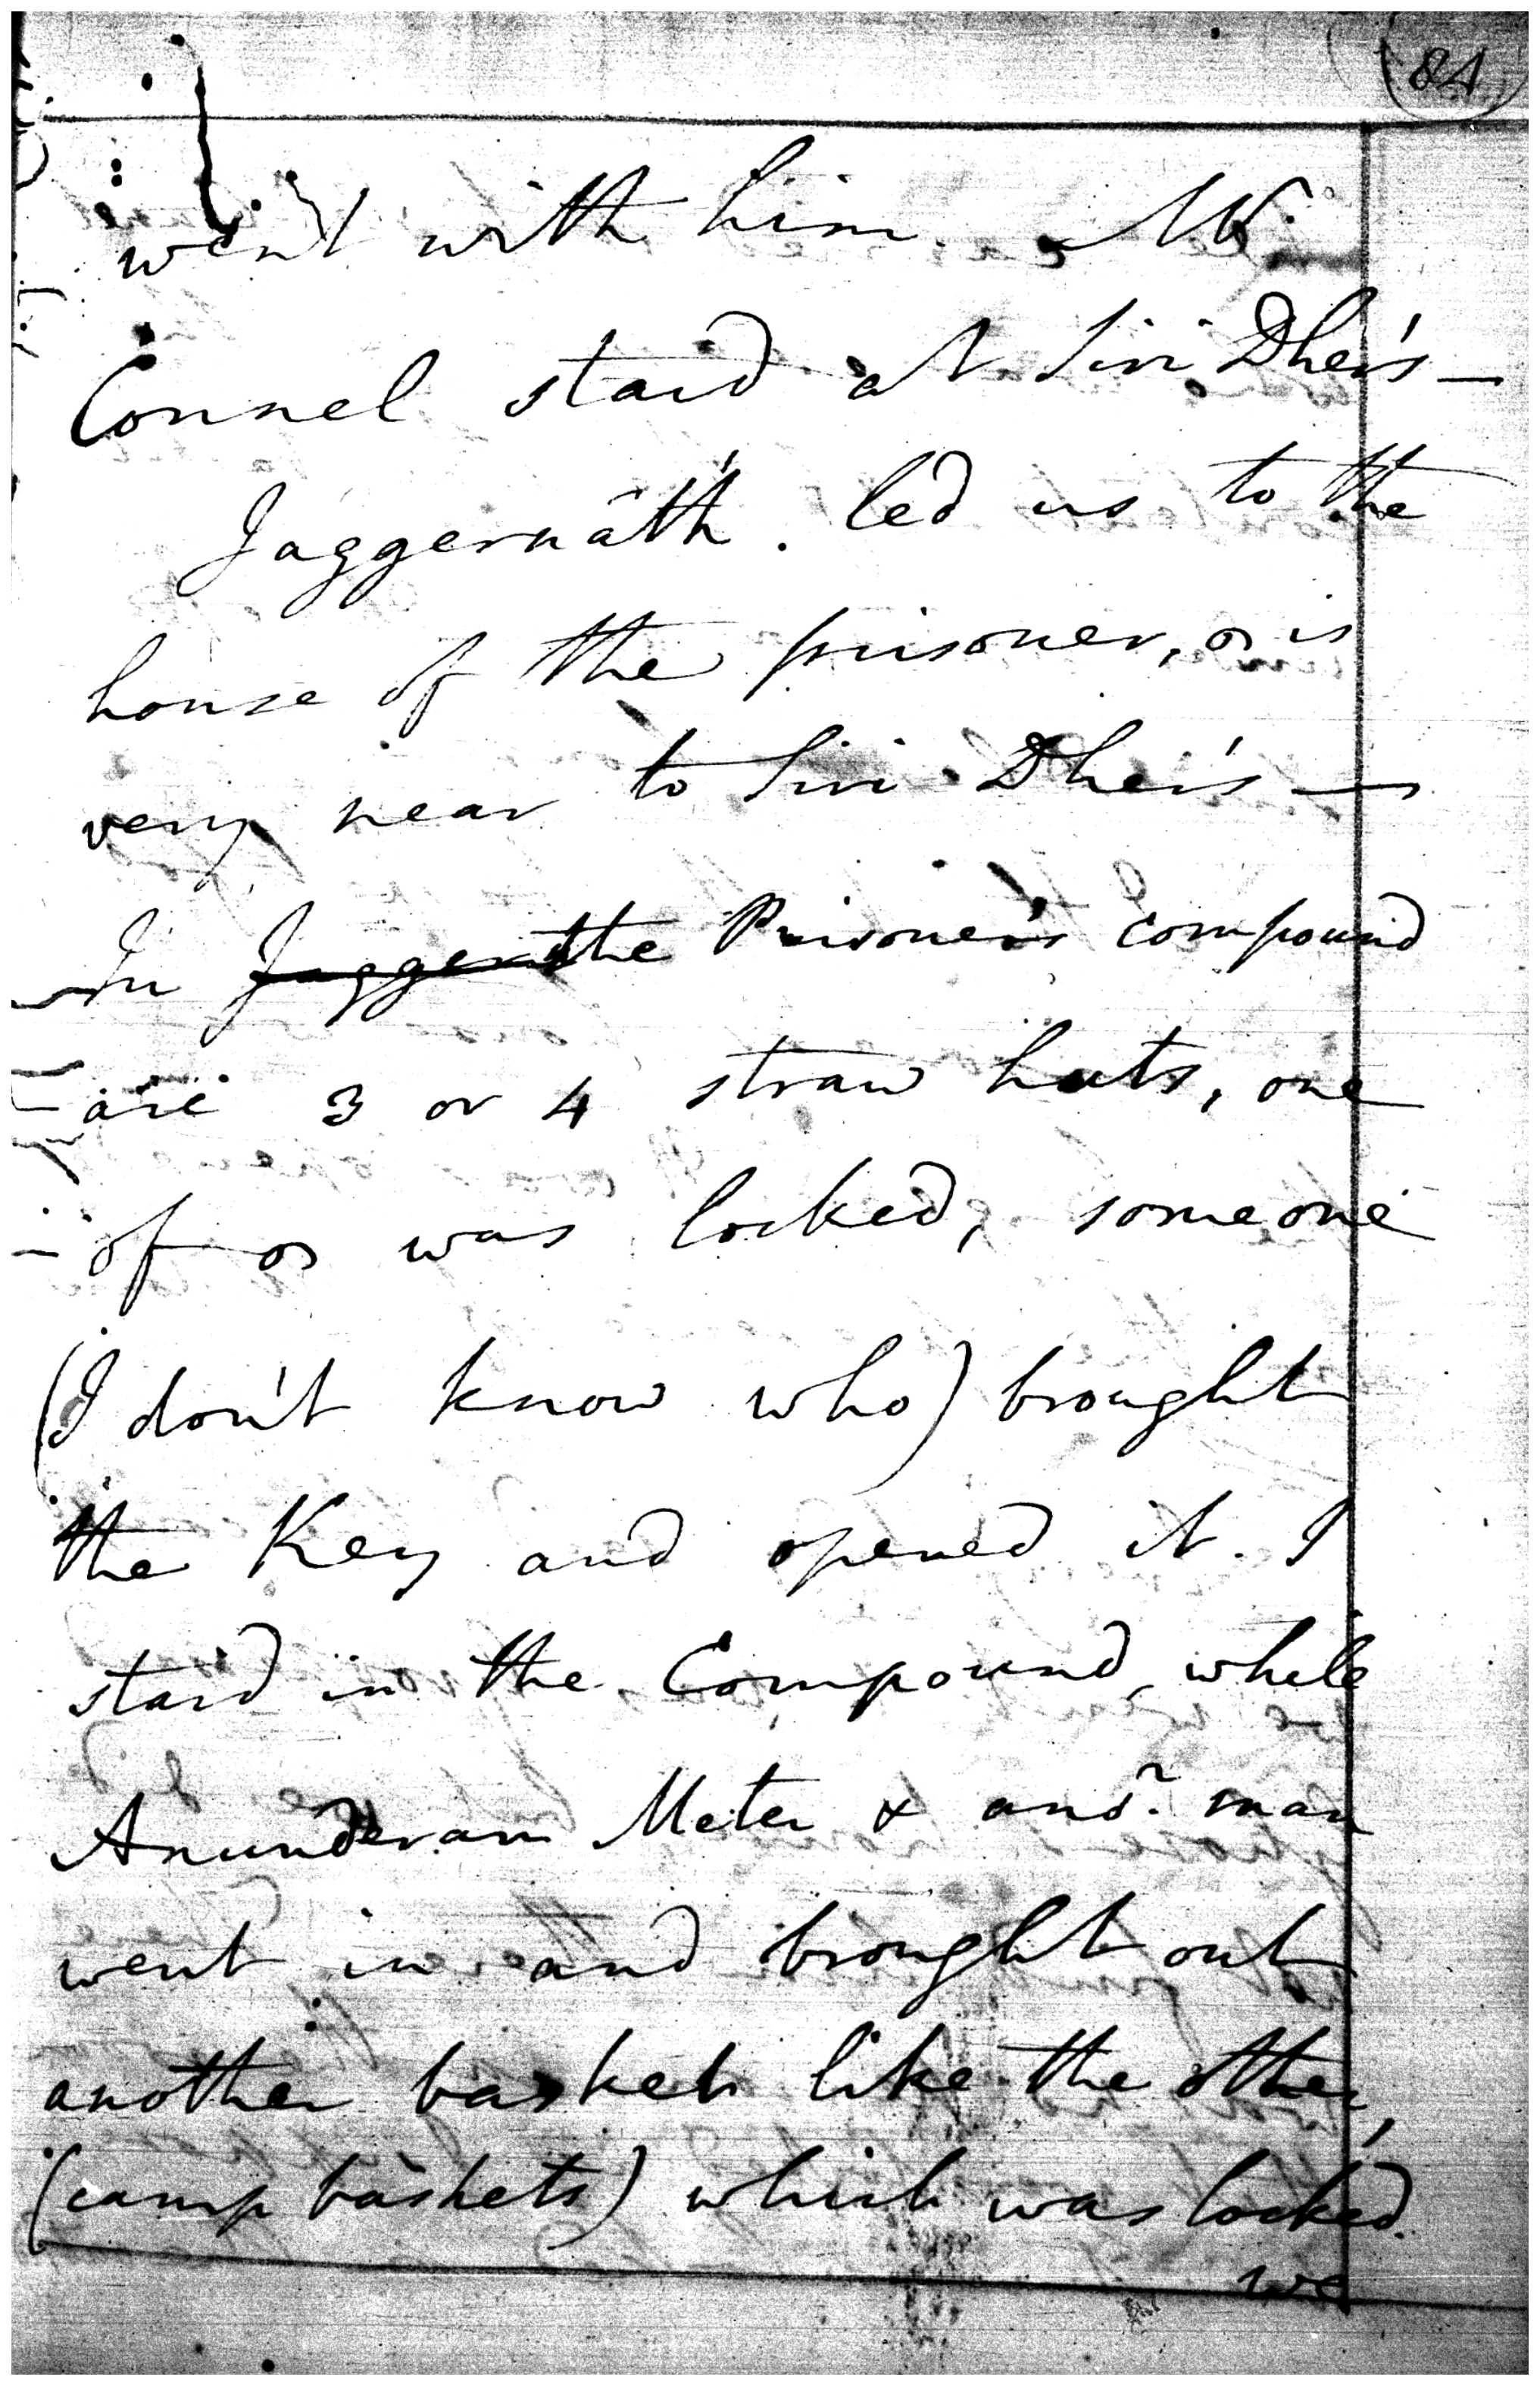 84
went with him. Mr.
Connel staid at Siri Dhei's —
Jaggernâth. led us to the
house of the prisoner, os is
very near to Siri Dhei's —
In Jaggern the Prisoner's compound
are 3 or 4 straw huts, one
of os was locked, someone
(I don't know who) brought
the Key and opened it. I
staid in the Compound, while
Anunderam Meter & anor. man
went in and brought out
another basket like the other,
(camp baskets) which was locked.
we